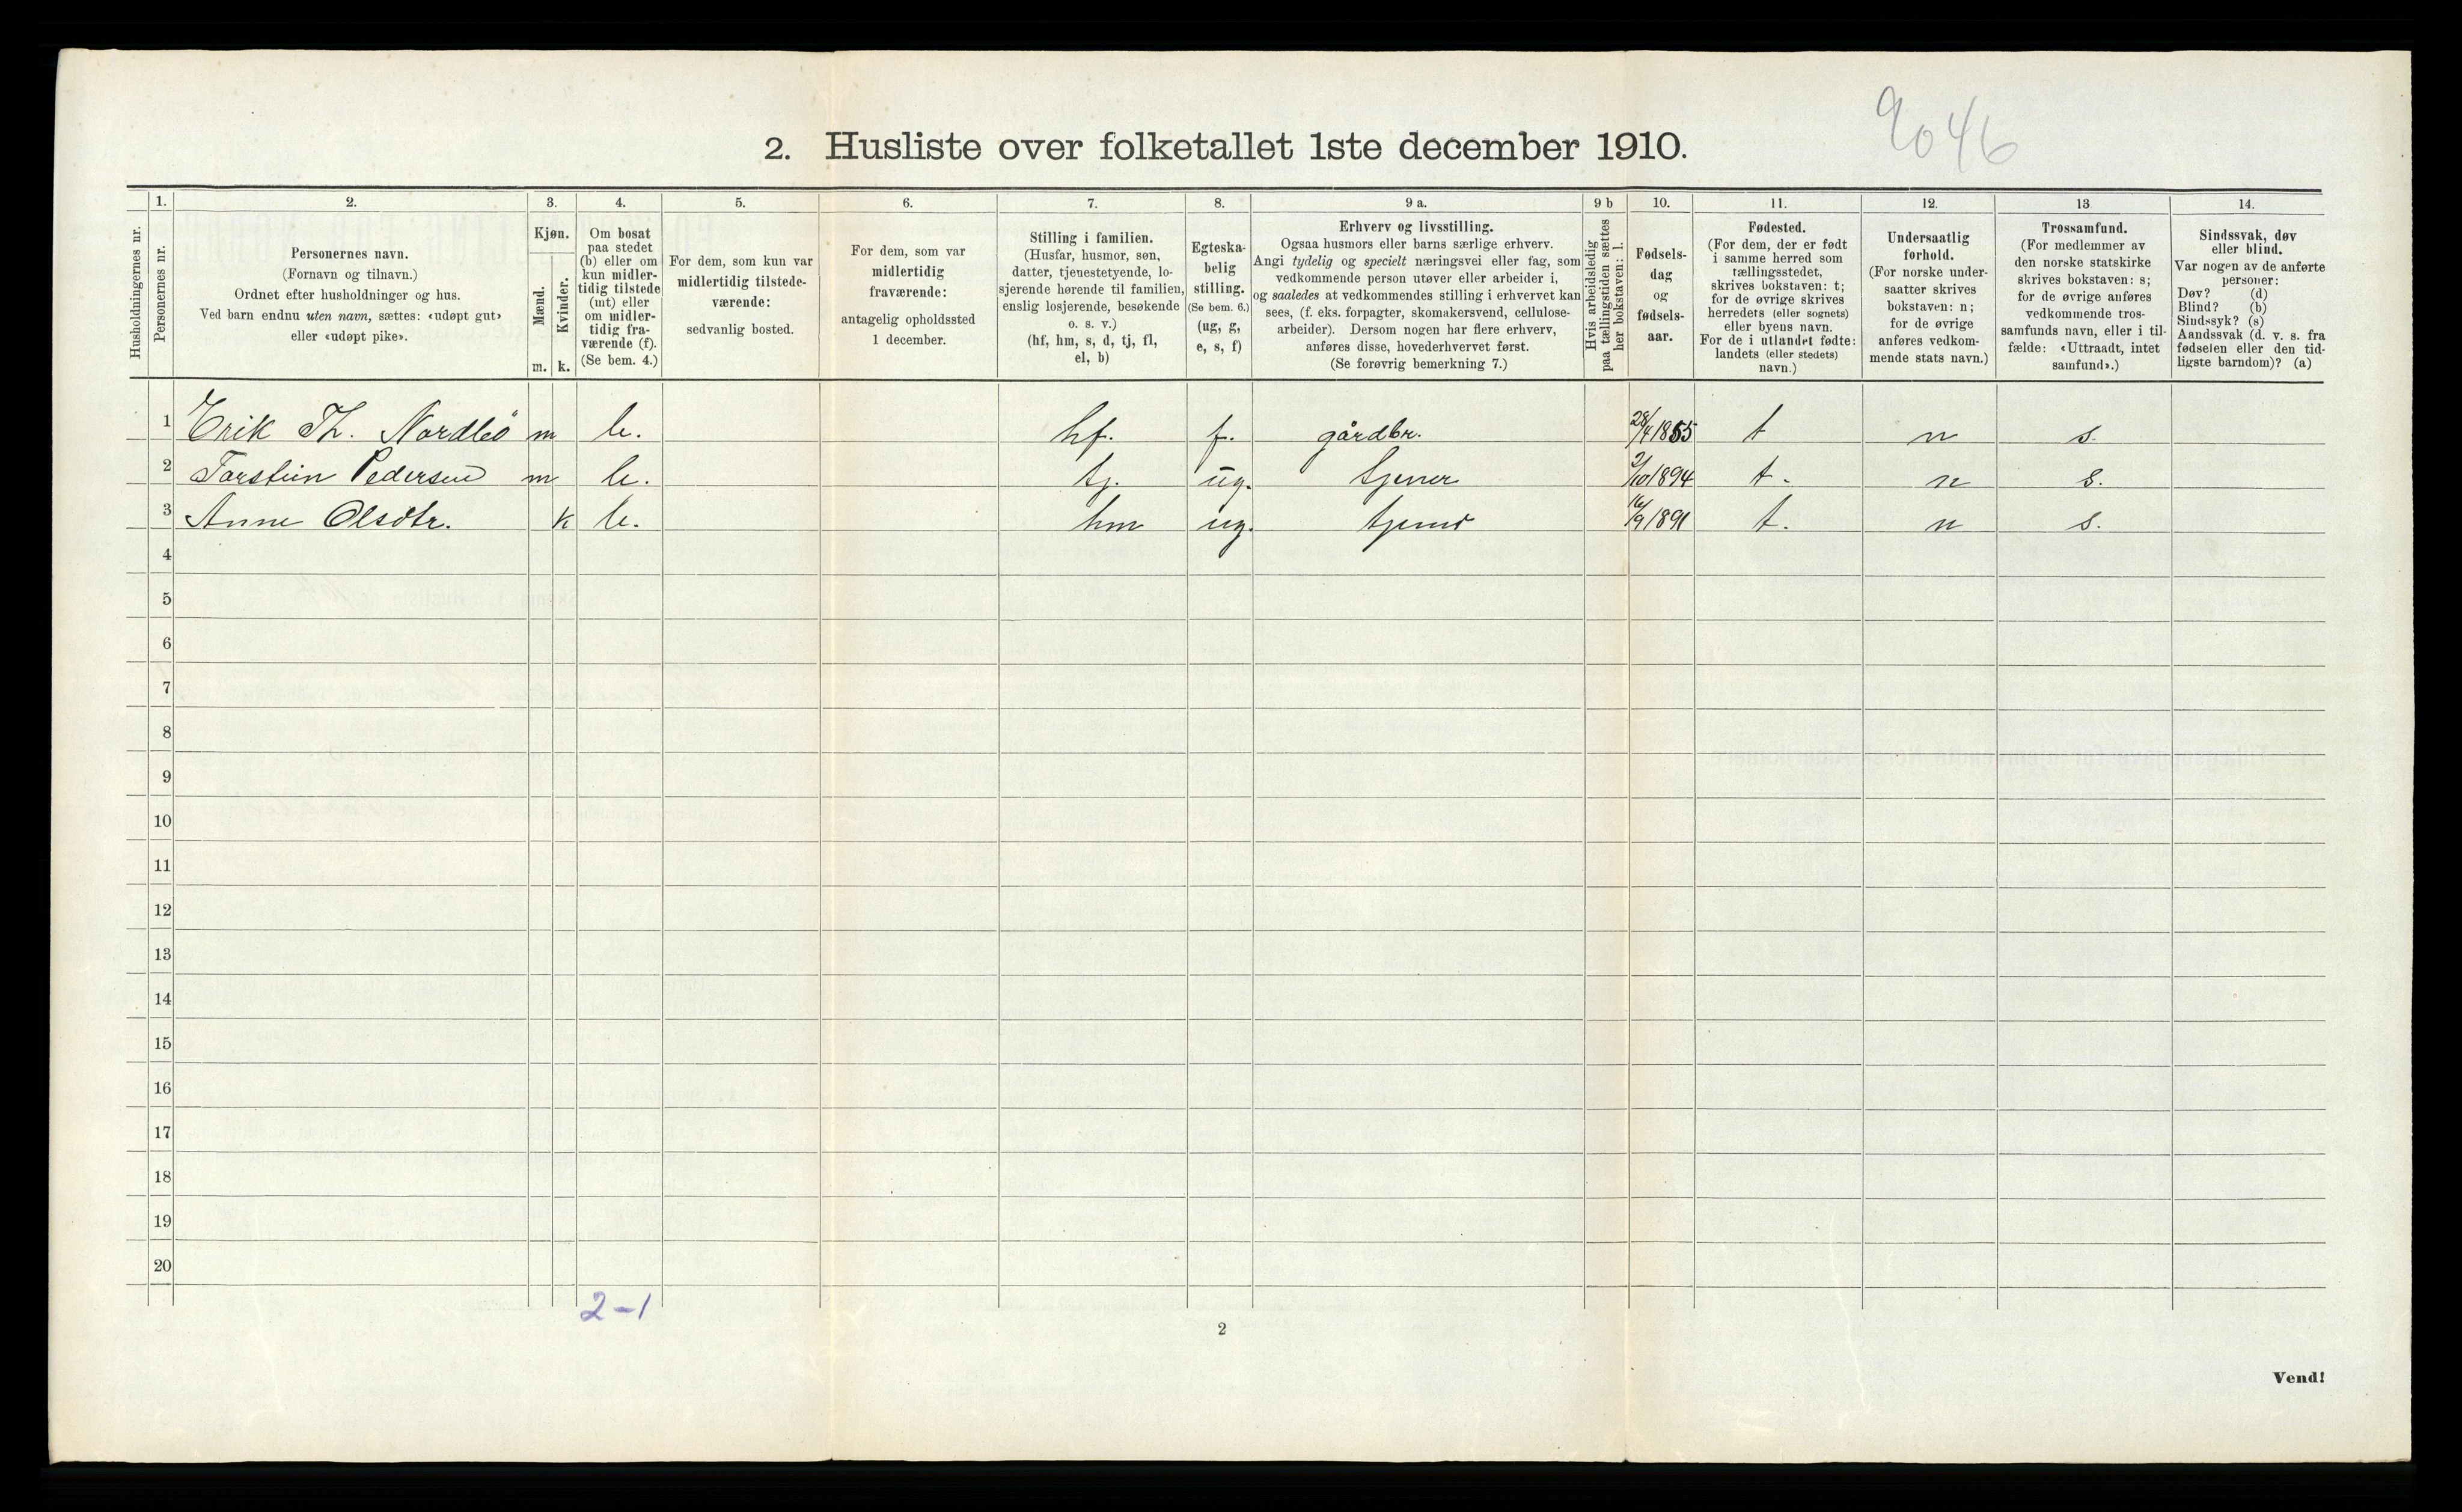 9046
2. Husliste over folketallet 1ste december 1910.
Husholdningernes nr.
1.
Personernes nr.
2.
Personernes navn.
(Fornavn og tilnavn.)
Ordnet efter husholdninger og hus.
Ved barn endnu uten navn, sættes: «udøpt gut»
eller «udøpt pike».
3.
Kjøn.
Mænd.
Kvinder.
m. k.
4.
Om bosat
paa stedet
(b) eller om
kun midler-
tidig tilstede
(mt) eller
om midler-
tidig fra-
værende (f).
(Se bem. 4.)
5.
For dem, som kun var
midlertidig tilstede-
værende:
sedvanlig bosted.
6.
For dem, som var
midlertidig
fraværende:
antagelig opholdssted
1 december.
7.
Stilling i familien.
(Husfar, husmor, søn,
datter, tjenestetyende, lo-
sjerende hørende til familien,
enslig losjerende, besøkende
o. s. v.)
(hf, hm, s, d, tj, fl,
el, b)
8.
Egteska-
belig
stilling.
(Se bem. 6.)
(ug, g,
e, s, f)
9 a.
Erhverv og livsstilling.
Ogsaa husmors eller barns særlige erhverv.
Angi tydelig og specielt næringsvei eller fag, som
vedkommende person utøver eller arbeider i,
og saaledes at vedkommendes stilling i erhvervet kan
sees, (f. eks. forpagter, skomakersvend, cellulose-
arbeider). Dersom nogen har flere erhverv,
anføres disse, hovederhvervet først.
(Se forøvrig bemerkning 7.)
9 b
Hvis arbeidsledig
paa tællingstiden sættes
her bokstaven: l.
10.
Fødsels-
dag
og
fødsels-
aar.
11.
Fødested.
(For dem, der er født
i samme herred som
tællingsstedet,
skrives bokstaven: t;
for de øvrige skrives
herredets (eller sognets)
eller byens navn.
For de i utlandet fødte:
landets (eller stedets)
navn.)
12.
Undersaatlig
forhold.
(For norske under-
saatter skrives
bokstaven: n;
for de øvrige
anføres vedkom-
mende stats navn.)
13
Trossamfund.
(For medlemmer av
den norske statskirke
skrives bokstaven: s;
for de øvrige anføres
vedkommende tros-
samfunds navn, eller i til-
fælde: «Uttraadt, intet
samfund».)
14.
Sindssvak, døv
eller blind.
Var nogen av de anførte
personer:
Døv? (d)
Blind? (b)
Sindssyk? (s)
Aandssvak (d. v. s. fra
fødselen eller den tid-
ligste barndom)? (a)
1 Erik Th. Nordlö
m b. hf. f. gårdbr. 28/4 1855 t n s.
2 Torstein Pedersen m b. tj. ug. tjener 2/10 1894 t. n s.
3 Anne Olsdtr. k b. hm ug. 16/9 1891 t. n s.
4
5
6
7
8
9
10
11
12
13
14
15
16
17
18
19
20
2-1
2
Vend!